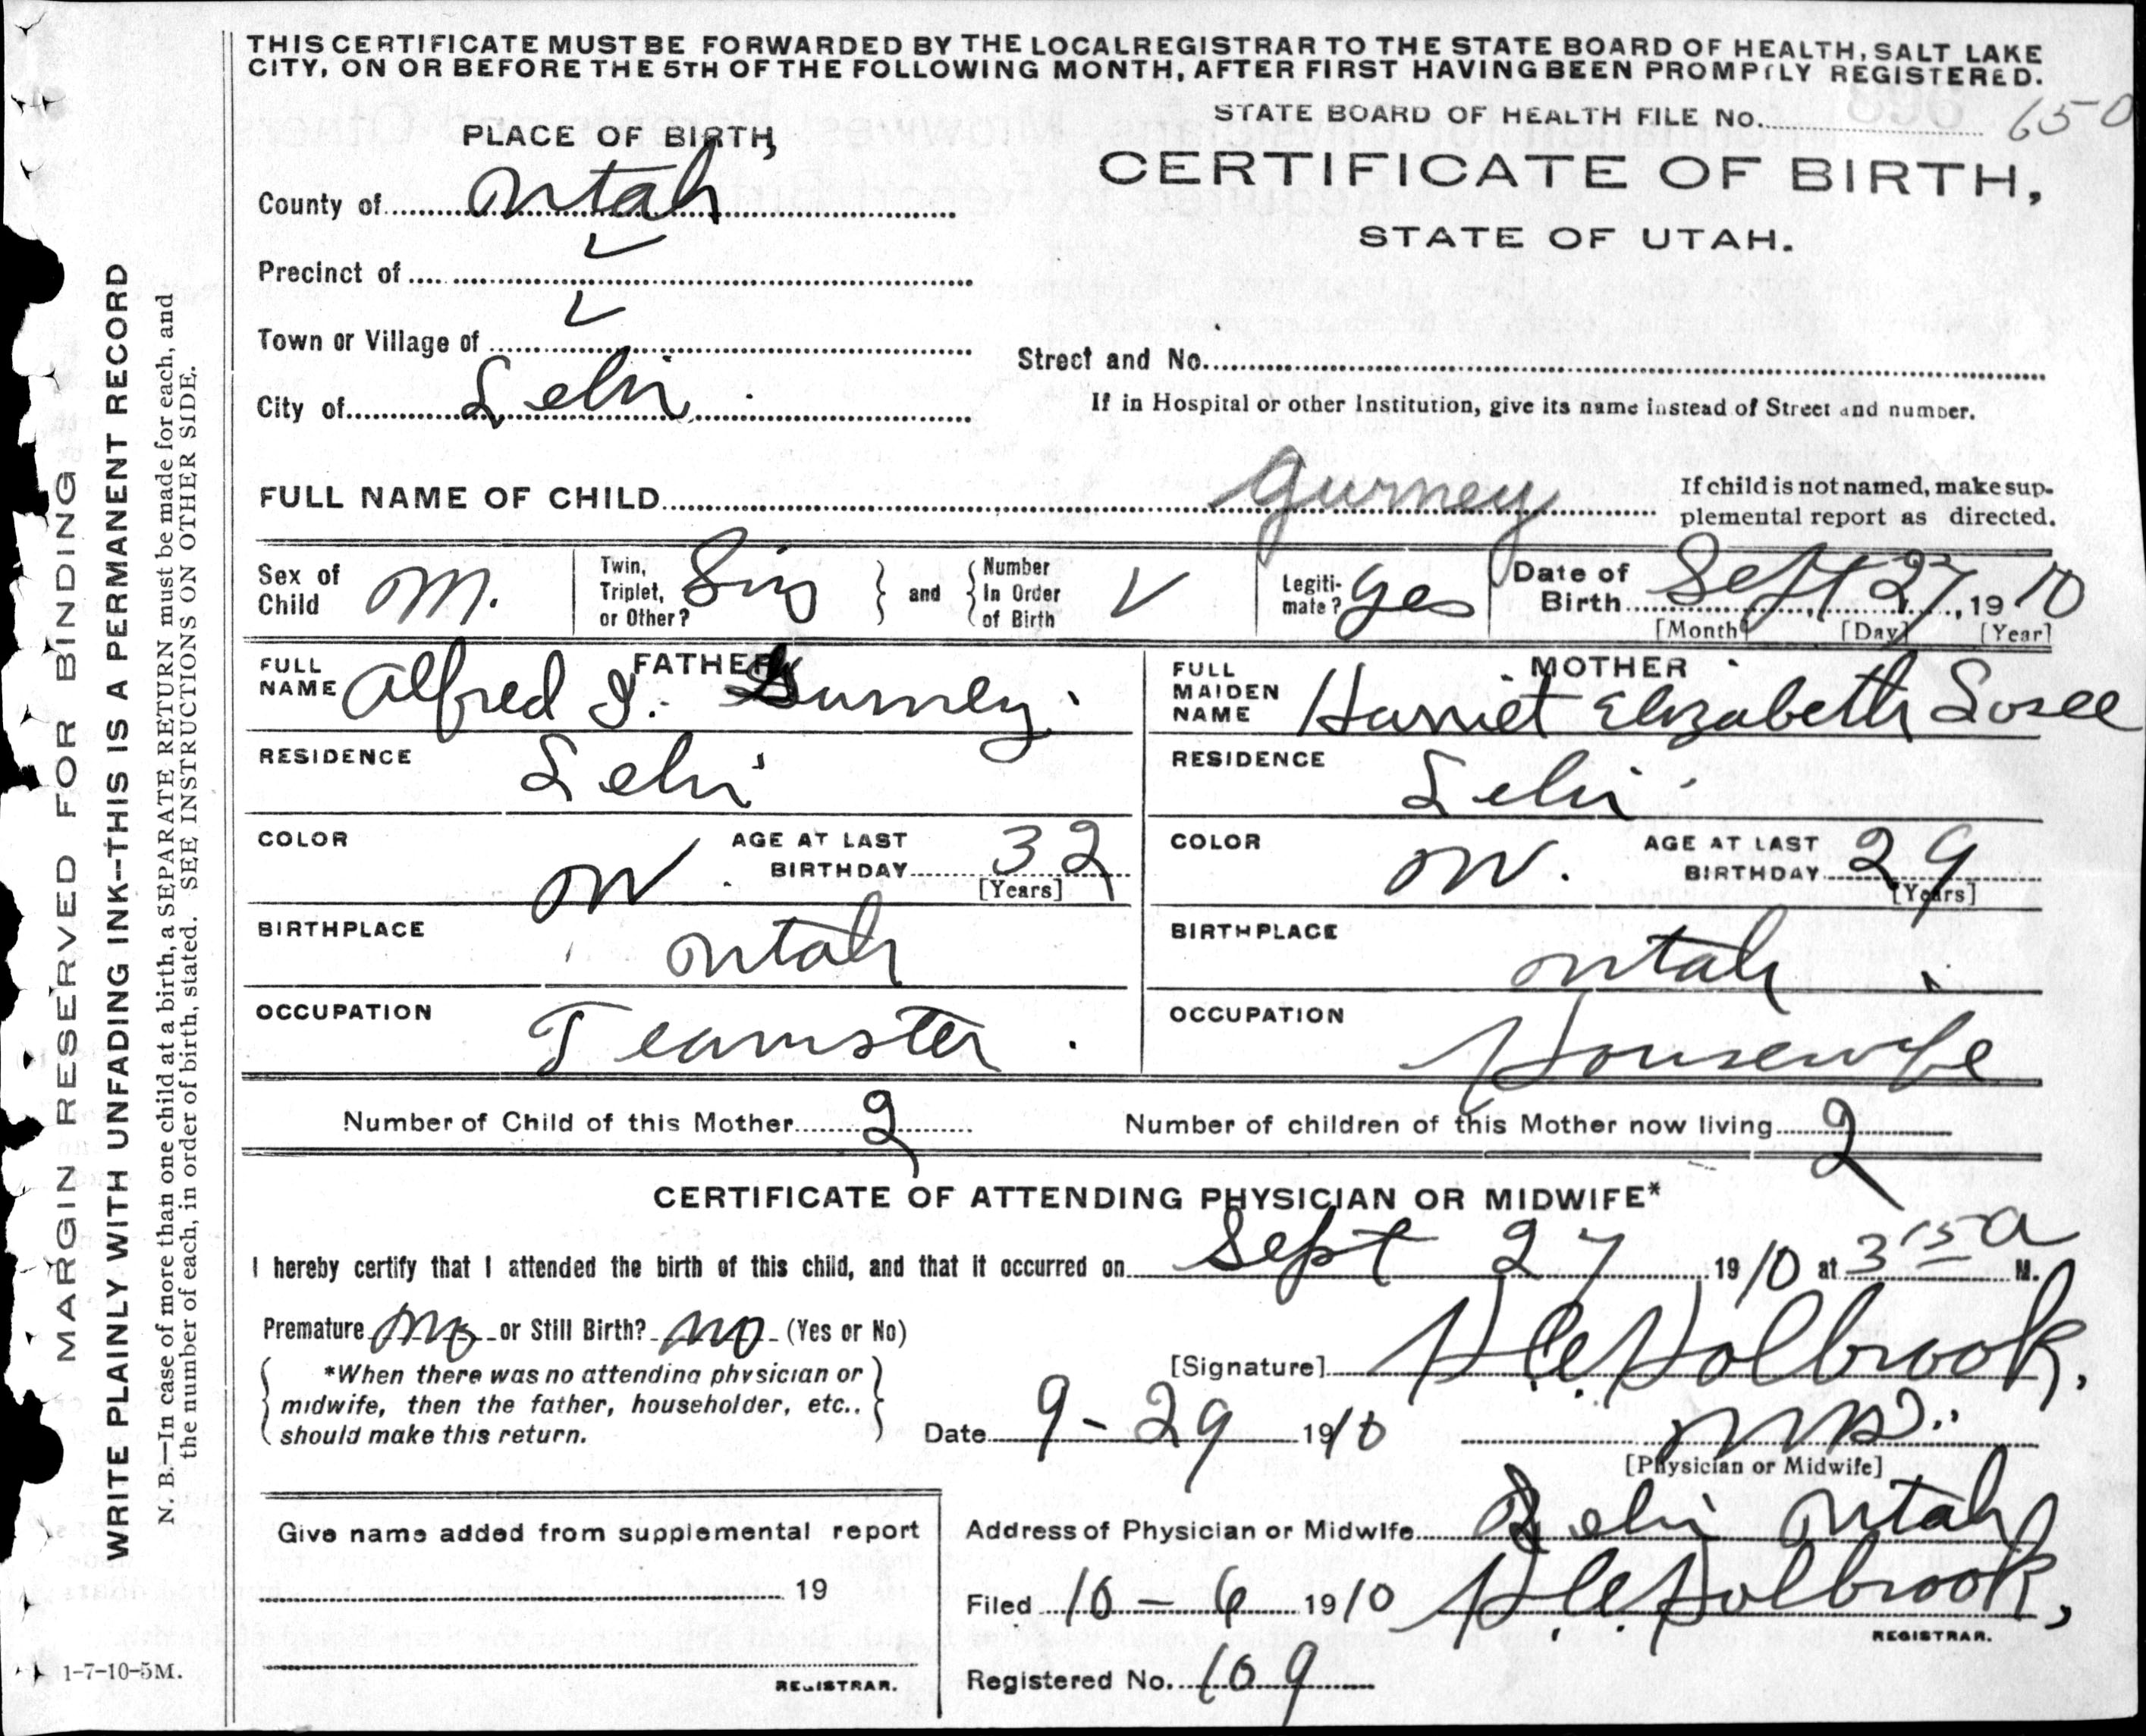 THIS CERTIFICATE MUST BE FORWARDED BY THE LOCAL REGISTRAR TO THE STATE BOARD OF HEALTH, SALT LAKE
CITY, ON OR BEFORE THE 5TH OF THE FOLLOWING MONTH, AFTER FIRST HAVING BEEN PROMPTLY REGISTERED.
STATE BOARD OF HEALTH FILE No. 650
PLACE OF BIRTH,
CERTIFICATE OF BIRTH,
STATE OF UTAH.
County of Utah
Precinct of
Town or Village of
Street and No.
City of Lehi
If in Hospital or other Institution, give its name instead of Street and number.
FULL NAME OF CHILD Gurney
If child is not named, make sup-
plemental report as directed.
Sex of Child M.
Twin, Triplet, or Other? Sing
and
Number In Order of Birth
Legiti-mate? Yes
Date of Birth Sept 27, 1910
[Month] [Day] [Year]
FATHER
FULL NAME Alfred J. Gurney.
MOTHER
FULL MAIDEN NAME Harriet Elizabeth Losee
RESIDENCE Lehi
RESIDENCE Lehi
COLOR W. AGE AT LAST BIRTHDAY 32 [Years]
COLOR W. AGE AT LAST BIRTHDAY 29 [Years]
BIRTHPLACE Utah
BIRTHPLACE Utah
OCCUPATION Teamster.
OCCUPATION Housewife
Number of Child of this Mother 2 Number of children of this Mother now living 2
CERTIFICATE OF ATTENDING PHYSICIAN OR MIDWIFE*
I hereby certify that I attended the birth of this child, and that it occurred on Sept 27 1910 at 3 15 a M.
Premature No or Still Birth? no (Yes or No)
*When there was no attending physician or
midwife, then the father, householder, etc.,
should make this return.
[Signature] H.C. Holbrook,
Date 9-29 1910
M.D.
[Physician or Midwife]
Give name added from supplemental report
19
REGISTRAR.
Address of Physician or Midwife Lehi Utah
Filed 10-6 1910 H.C. Holbrook,
REGISTRAR.
Registered No. 109
1-7-10-5M.
MARGIN RESERVED FOR BINDING
WRITE PLAINLY WITH UNFADING INK--THIS IS A PERMANENT RECORD
N. B.—In case of more than one child at a birth, a SEPARATE RETURN must be made for each, and
the number of each, in order of birth, stated. SEE INSTRUCTIONS ON OTHER SIDE.